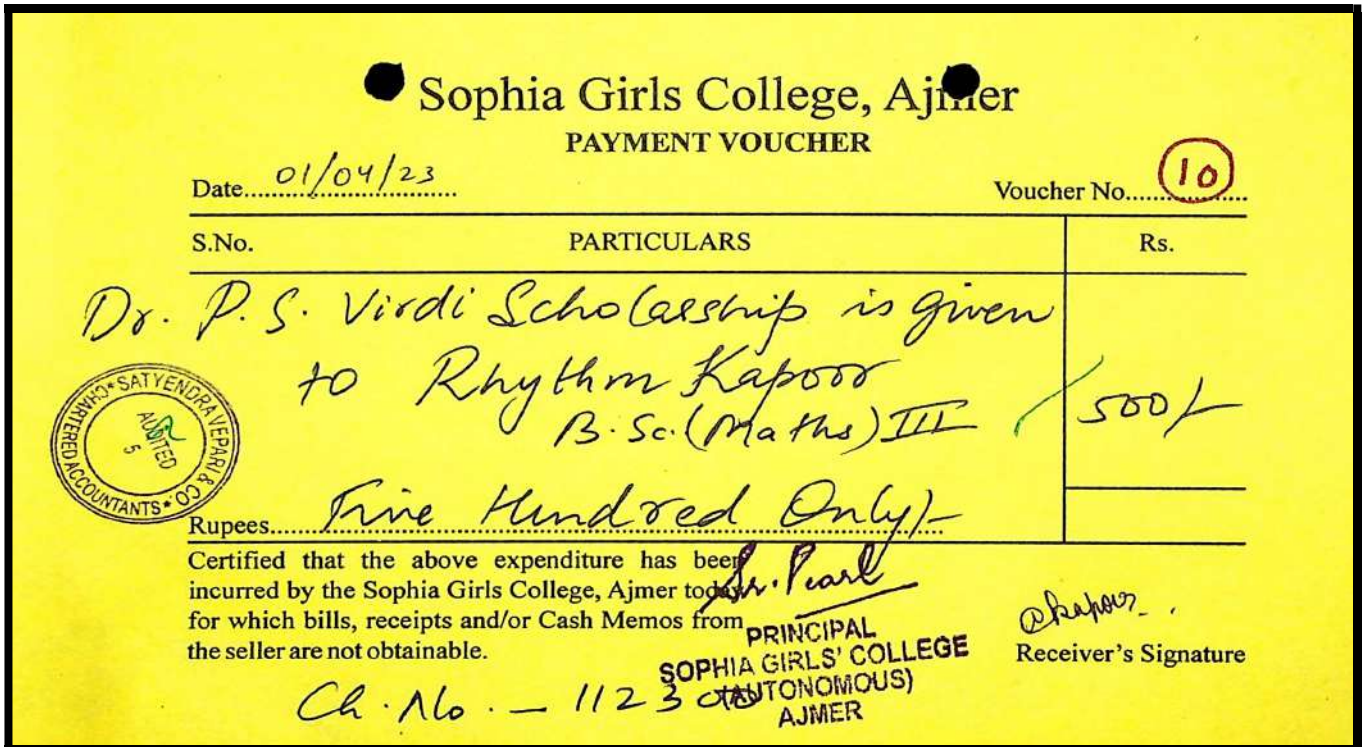 Sophia Girls College, Ajmer
PAYMENT VOUCHER
Date.....01/04/23..... Voucher No.....10.....
S.No. PARTICULARS Rs.
Dr. P.S. Virdi Scholarship is given
to Rhythm Kapoor
B.Sc.(Maths) III 500/-
SATYENDRA VEPARI & CO. * CHARTERED ACCOUNTANTS *
AUDITED
5
Rupees.....Five Hundred Only/-.....
Certified that the above expenditure has been
incurred by the Sophia Girls College, Ajmer today
for which bills, receipts and/or Cash Memos from
the seller are not obtainable.
Sr. Pearl
PRINCIPAL
SOPHIA GIRLS' COLLEGE
(AUTONOMOUS)
AJMER
Receiver's Signature
Ch. No. - 1123